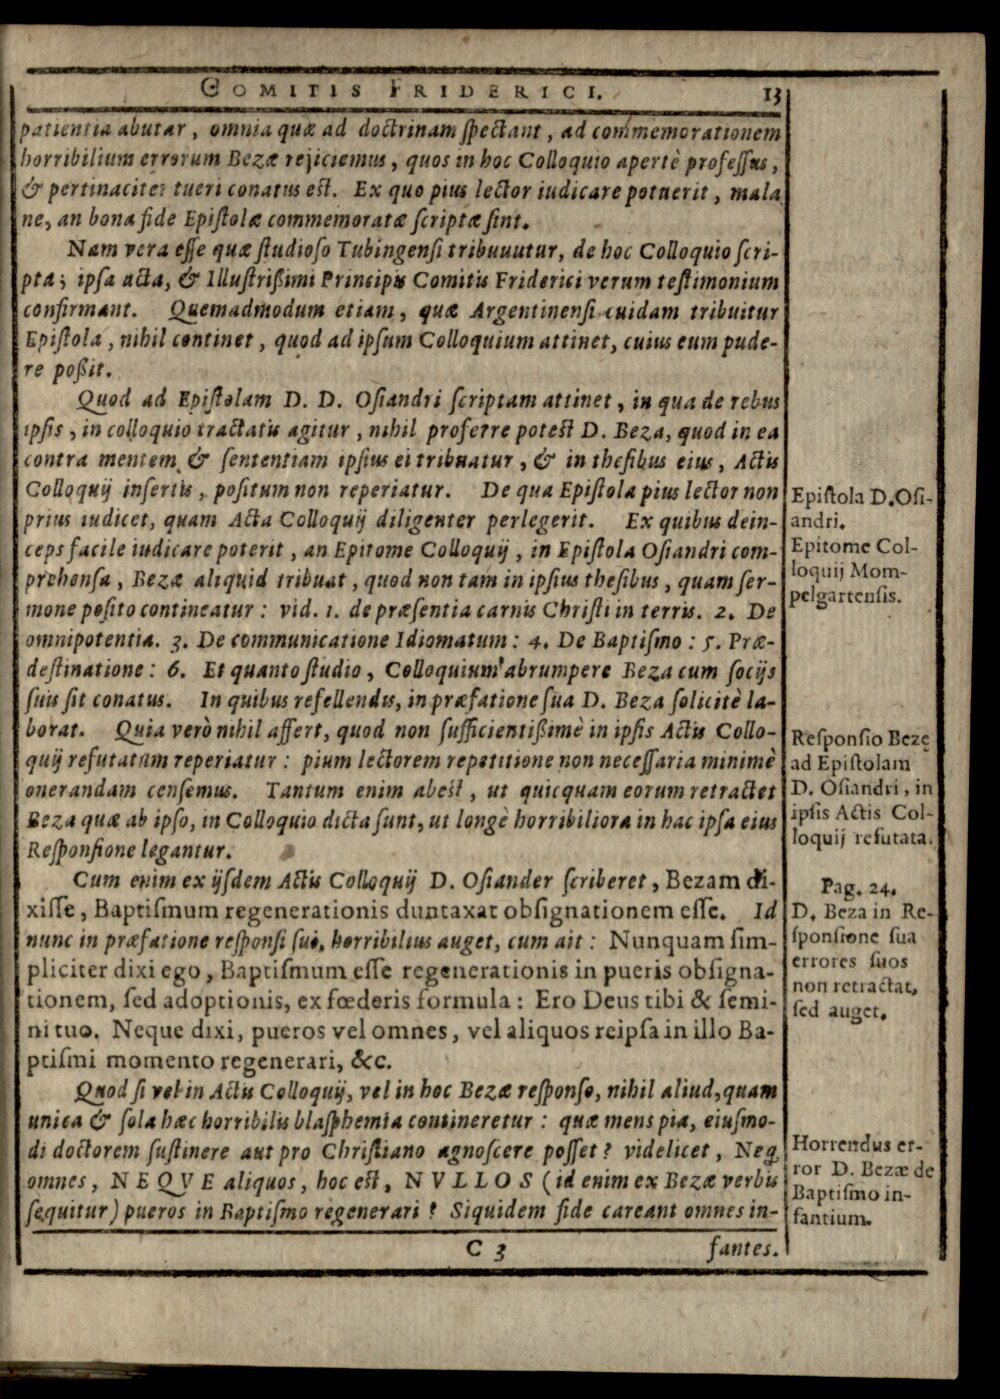 COMITIS FRIDERICI. 13
patientia abutar, omnia quæ ad doctrinam ſpectant, ad commemorationem
horribilium errorum Bezæ rejiciemus, quos in hoc Colloquio apertè profeſſus,
& pertinaciter tueri conatus eſt. Ex quo pius lector iudicare potuerit, mala
ne, an bona fide Epiſtolæ commemoratæ ſcriptæ ſint.
Nam vera eſſe quæ ſtudioſo Tubingenſi tribuuutur, de hoc Colloquio ſcri-
pta; ipſa acta, & Illuſtrißimi Principis Comitis Friderici verum teſtimonium
confirmant. Quemadmodum etiam, quæ Argentinenſi cuidam tribuitur
Epiſtola, nihil continet, quod ad ipſum Colloquium attinet, cuius eum pude-
re poßit.
Quod ad Epiſtolam D. D. Oſiandri ſcriptam attinet, in qua de rebus
ipſis, in colloquio tractatis agitur, nihil proferre poteſt D. Beza, quod in ea
contra mentem & ſententiam ipſius ei tribuatur, & in theſibus eius, Actis
Colloquij inſertis, poſitum non reperiatur. De qua Epiſtola pius lector non
prius iudicet, quam Acta Colloquij diligenter perlegerit. Ex quibus dein-
ceps facile iudicare poterit, an Epitome Colloquij, in Epiſtola Oſiandri com-
prehenſa, Bezæ aliquid tribuat, quod non tam in ipſius theſibus, quam ſer-
mone poſito contineatur: vid. 1. de præſentia carnis Chriſti in terris. 2. De
omnipotentia. 3. De communicatione Idiomatum: 4. De Baptiſmo: 5. Præ-
deſtinatione: 6. Et quanto ſtudio, Colloquium abrumpere Beza cum ſocijs
ſuis ſit conatus. In quibus refellendis, in præfatione ſua D. Beza ſolicitè la-
borat. Quia verò nihil affert, quod non ſufficientißimè in ipſis Actis Collo-
quij refutatum reperiatur: pium lectorem repetitione non neceſſaria minimè
onerandam cenſemus. Tantum enim abeſt, ut quicquam eorum retractet
Beza quæ ab ipſo, in Colloquio dicta ſunt, ut longè horribiliora in hac ipſa eius
Reſponſione legantur.
Cum enim ex ijſdem Actis Colloquij D. Oſiander ſcriberet, Bezam di-
xiſſe, Baptiſmum regenerationis duntaxat obſignationem eſſe. Id
nunc in præfatione reſponſi ſui, horribilius auget, cum ait: Nunquam ſim-
pliciter dixi ego, Baptiſmum eſſe regenerationis in pueris obſigna-
tionem, ſed adoptionis, ex fœderis formula: Ero Deus tibi & ſemi-
ni tuo. Neque dixi, pueros vel omnes, vel aliquos reipſa in illo Ba-
ptiſmi momento regenerari, &c.
Quod ſi vel in Actis Colloquij, vel in hoc Bezæ reſponſo, nihil aliud, quam
unica & ſola hæc horribilis blaſphemia contineretur: quæ mens pia, eiuſmo-
di doctorem ſuſtinere aut pro Chriſtiano agnoſcere poſſet? videlicet, Neq;
omnes, NEQVE aliquos, hoc eſt, NVLLOS (id enim ex Bezæ verbis
ſequitur) pueros in Baptiſmo regenerari? Siquidem fide careant omnes in-
C 3 fantes.
Epiſtola D. Oſi-
andri.
Epitome Col-
loquij Mom-
pelgartenſis.
Reſponſio Bezę
ad Epiſtolam
D. Oſiandri, in
ipſis Actis Col-
loquij refutata.
Pag. 24.
D. Beza in Re-
ſponſione ſua
errores ſuos
non retractat,
ſed auget.
Horrendus er-
ror D. Bezæ de
Baptiſmo in-
fantium.